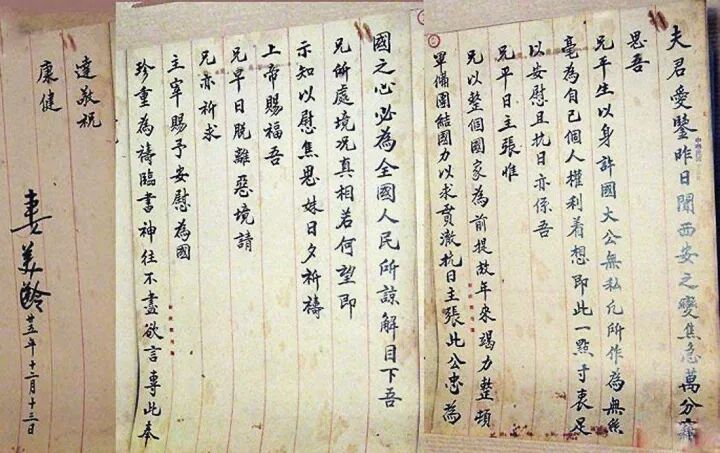 夫君愛鑒昨日聞西安之變焦急萬分竊
思吾
兄平生以身許國大公無私凡所作為無絲
毫為自己個人權利着想即此一點寸衷足
以安慰且抗日亦係吾
兄平日主張惟
兄以整個國家為前提故年來竭力整頓
軍備團結國力以求貫澈抗日主張此公忠為
國之心必為全國人民所諒解目下吾
兄所處境况真相若何望即
示知以慰焦思妹日夕祈禱
上帝賜福吾
兄早日脫離惡境請
兄亦祈求
主宰賜予安慰為國
珍重為禱臨書神往不盡欲言專此奉
達敬祝
康健
妻美齡 廿五年十二月十三日